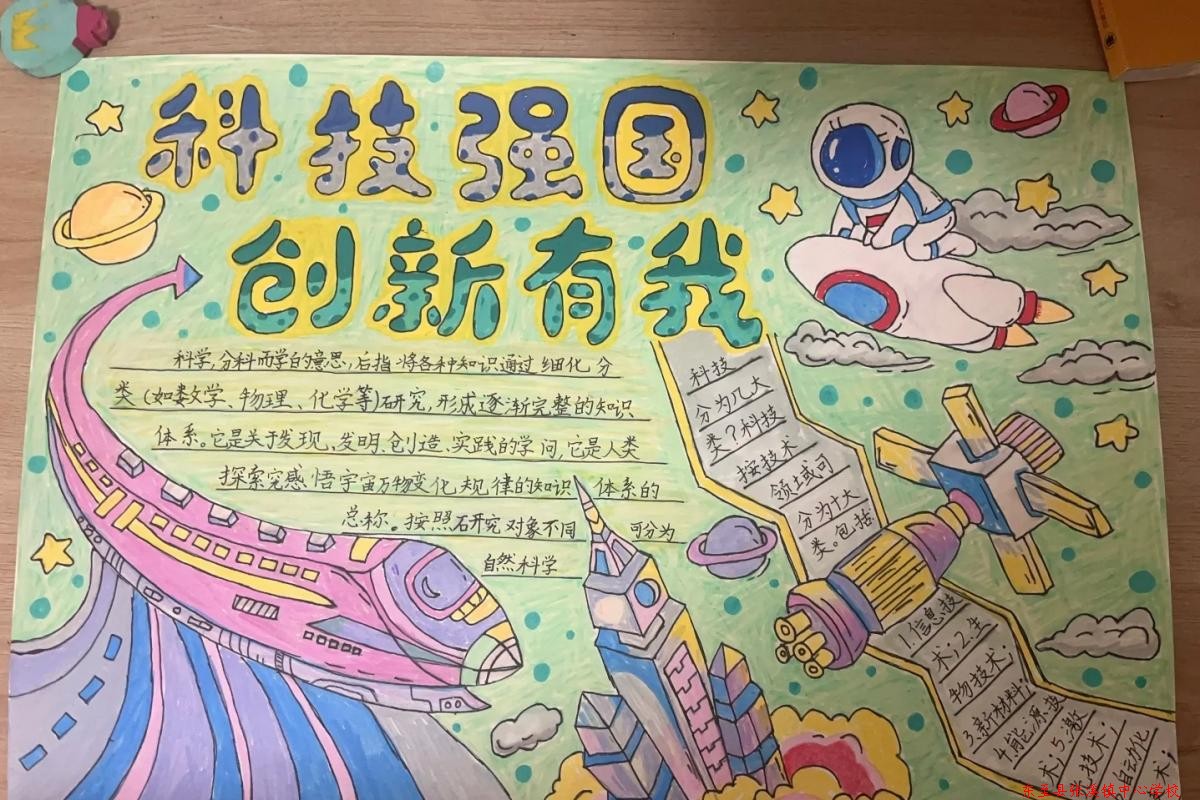 科技强国
创新有我
科学,分科而学的意思,后指将各种知识通过细化分
类(如数学、物理、化学等)研究,形成逐渐完整的知识
体系。它是关于发现、发明、创造、实践的学问,它是人类
探索究感悟宇宙万物变化规律的知识体系的
总称。按照研究对象不同可分为
自然科学
科技
分为几大
类?科技
按技术
领域可
分为十大
类。包括:
1.信息技
术;2.生
物技术;
3.新材料;
4.能源技
术;5.激
光技术;
自动化
术;